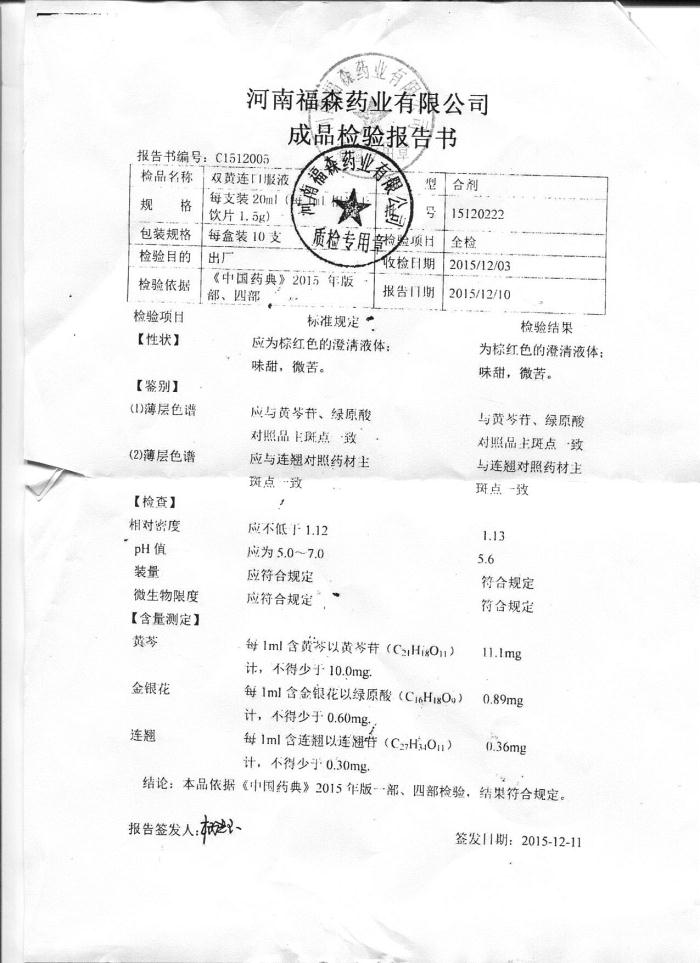 河南福森药业有限公司
成品检验报告书
报告书编号：C1512005
检品名称 双黄连口服液 型 合剂
规 格 每支装 20ml 号 15120222
饮片 1.5g）
包装规格 每盒装 10 支 检验项目 全检
检验目的 出厂 收检日期 2015/12/03
检验依据 《中国药典》2015 年版一部、四部 报告日期 2015/12/10
河南福森药业有限公司
质检专用章
检验项目 标准规定 检验结果
【性状】 应为棕红色的澄清液体； 为棕红色的澄清液体；
味甜，微苦。 味甜，微苦。
【鉴别】
(1)薄层色谱 应与黄芩苷、绿原酸 与黄芩苷、绿原酸
对照品主斑点一致 对照品主斑点一致
(2)薄层色谱 应与连翘对照药材主 与连翘对照药材主
斑点一致 斑点一致
【检查】
相对密度 应不低于 1.12 1.13
pH 值 应为 5.0～7.0 5.6
装量 应符合规定 符合规定
微生物限度 应符合规定 符合规定
【含量测定】
黄芩 每 1ml 含黄芩以黄芩苷（C₂₁H₁₈O₁₁） 11.1mg
计，不得少于 10.0mg.
金银花 每 1ml 含金银花以绿原酸（C₁₆H₁₈O₉） 0.89mg
计，不得少于 0.60mg.
连翘 每 1ml 含连翘以连翘苷（C₂₇H₃₄O₁₁） 0.36mg
计，不得少于 0.30mg.
结论：本品依据《中国药典》2015 年版一部、四部检验，结果符合规定。
报告签发人：
签发日期：2015-12-11